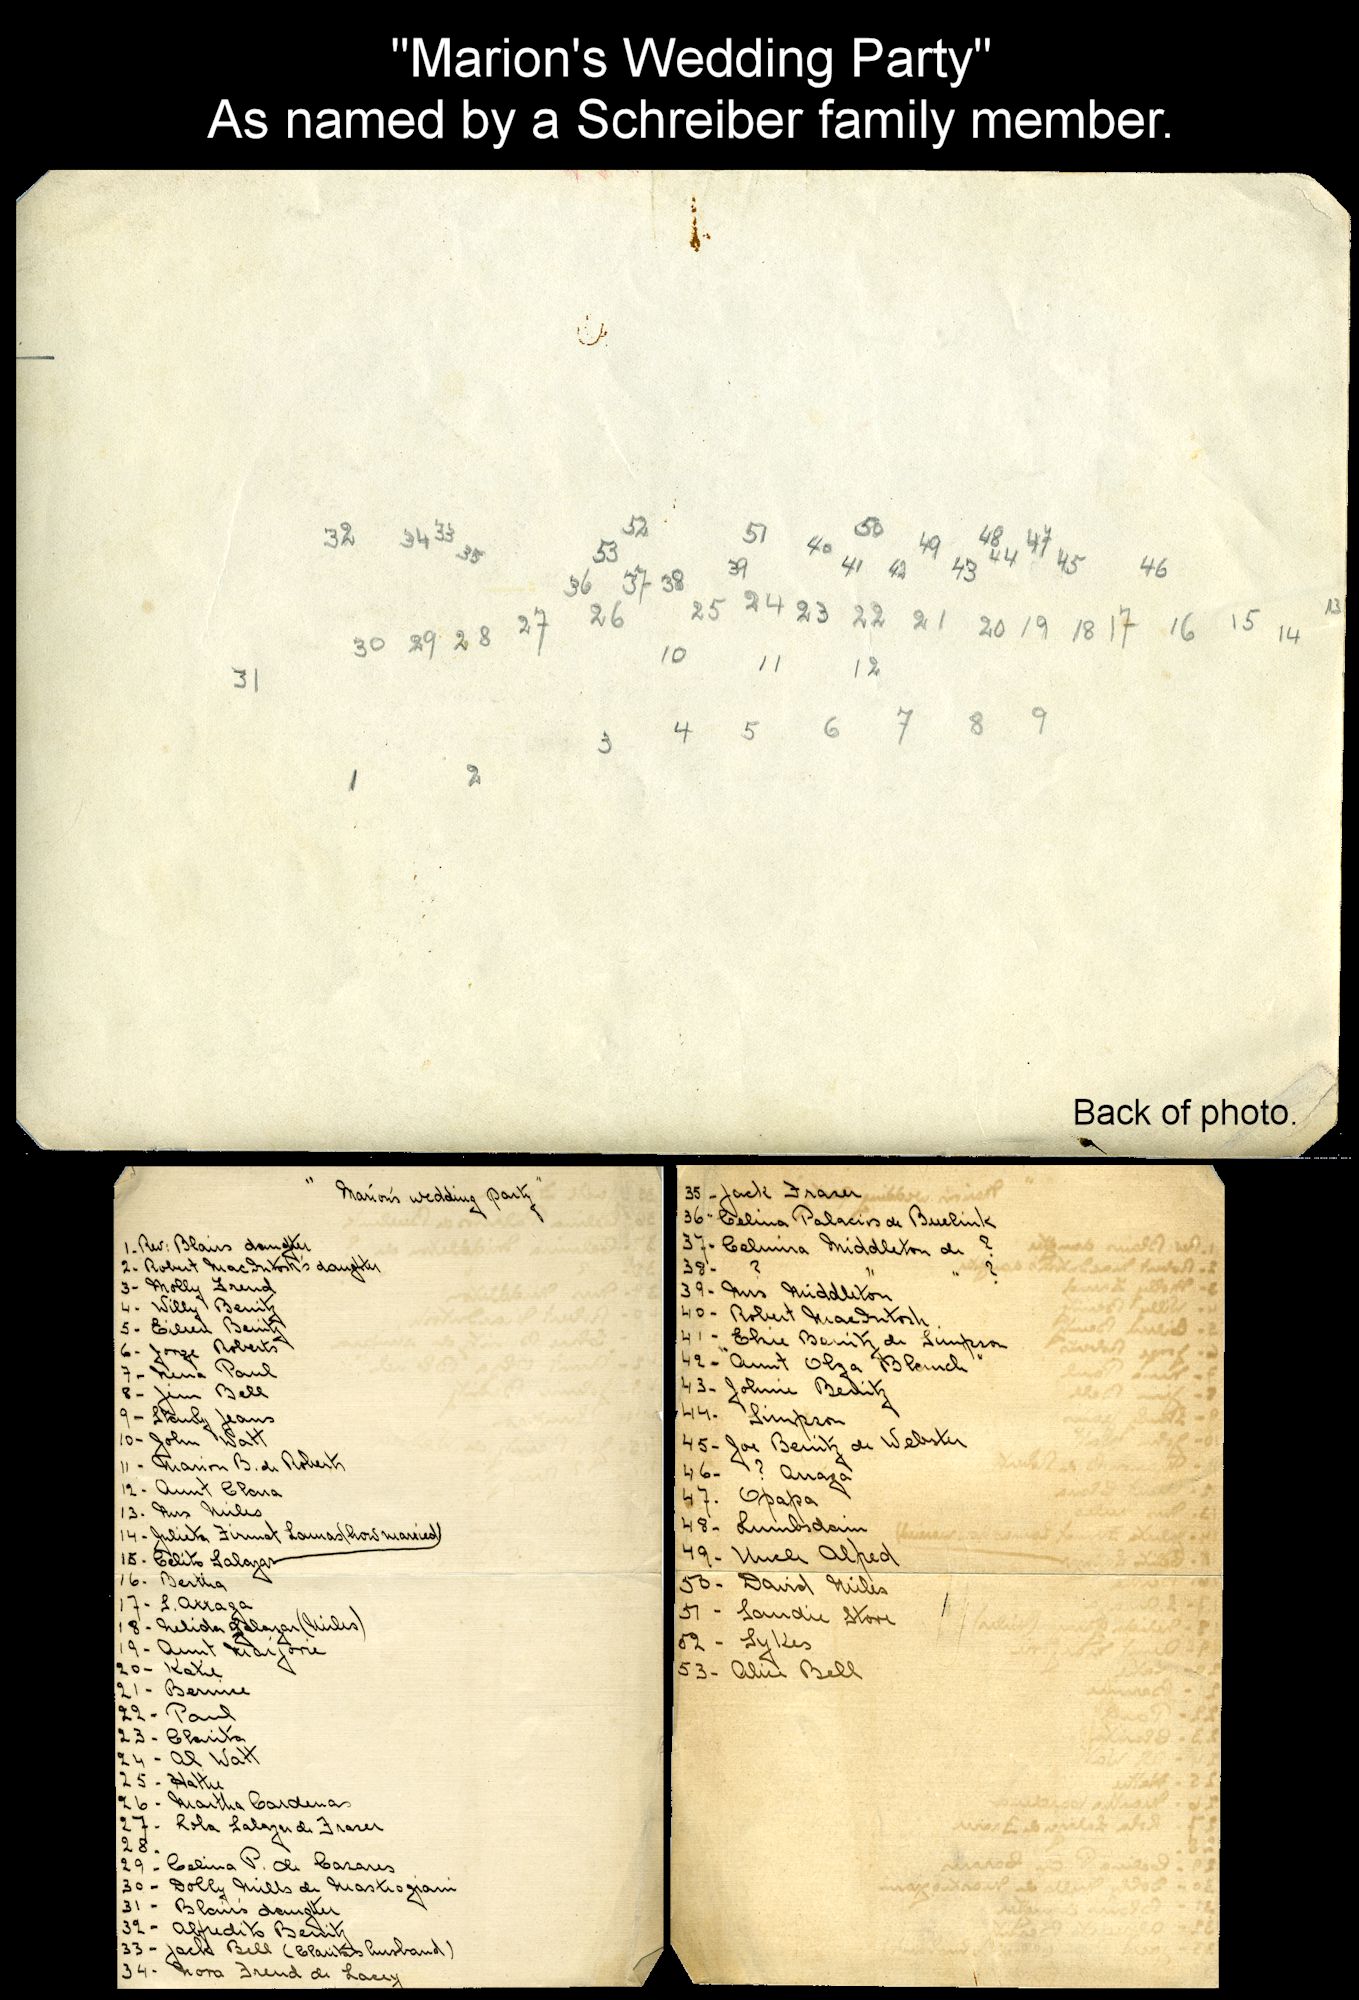 "Marion's Wedding Party"
As named by a Schreiber family member.
32 34 33 35 53 52 51 40 50 49 48 47
36 37 38 39 41 42 43 44 45 46
30 29 28 27 26 25 24 23 22 21 20 19 18 17 16 15 14 13
31 10 11 12
3 4 5 6 7 8 9
1 2
Back of photo.
"Marion's wedding party"
1. Rev: Blair's daughter
2- Robert MacIntosh's daughter
3- Molly Trend
4- Willy Benitz
5- Eileen Benitz
6- Jorge Roberts
7- Nena Paul
8- Jim Bell
9- Jeans
10- John Watt
11- Marion B. de Roberts
12- Aunt Clara
13- Mrs Miles
14- Julieta Firmat Lamas (how married)
15- Celito Salazar
16- Bertha
17- L. Arraga
18- Nelida Salazar (Miles)
19- Aunt Marjorie
20- Katie
21- Bernice
22- Paul
23- Clarita
24- Al Watt
25- Hattie
26- Martha Cardenas
27- Lola Salazar de Fraser
28-
29- Celina P. de Casares
30- Dolly Mills de Mastrogiani
31- Blair's daughter
32- Alfredito Benitz
33- Jack Bell (Clarita's husband)
34- Nora Trend de Lacey
35- Jack Fraser
36- Celina Palacios de Buelink
37- Celmira Middleton de ?
38- ? " " ?
39- Mrs Middleton
40- Robert MacIntosh.
41- Elsie Benitz de Simpson
42- "Aunt Olga Blanch"
43- Johnie Benitz
44- Simpson
45- Joe Benitz de Webster
46- ? Arraga
47. Opapa
48- Lumbsdain
49- Uncle Alfred
50- David Miles
51- Store
52- Sykes
53- Alice Bell